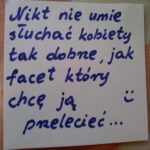 Nikt nie umie
słuchać kobiety
tak dobrze, jak
facet który
chcę ją
przelecieć...